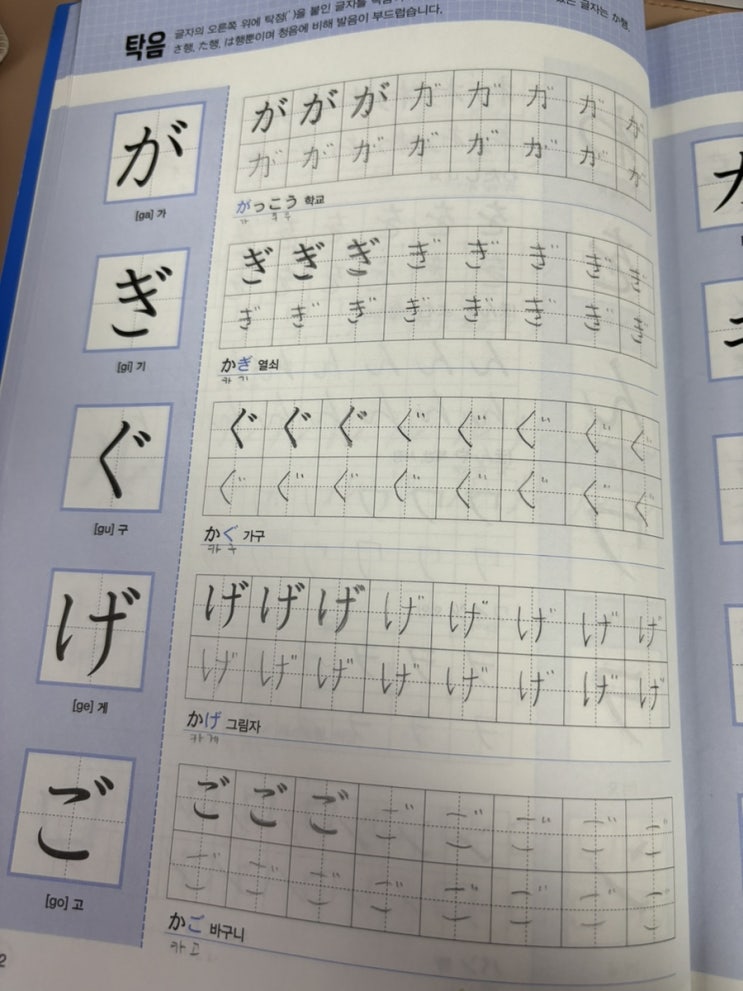 탁음 글자의 오른쪽 위에 탁점(゛)을 붙인 글자를
글자는 か행,
さ행, た행, は행뿐이며 청음에 비해 발음이 부드럽습니다.
が が が が が が が が が
が が が が が が が が
[ga] 가
がっこう 학교
ぎ ぎ ぎ ぎ ぎ ぎ ぎ ぎ ぎ
ぎ ぎ ぎ ぎ ぎ ぎ ぎ ぎ
[gi] 기
かぎ 열쇠
카 기
ぐ ぐ ぐ ぐ ぐ ぐ ぐ ぐ ぐ
ぐ ぐ ぐ ぐ ぐ ぐ ぐ ぐ
[gu] 구
かぐ 가구
카 구
げ げ げ げ げ げ げ げ げ
げ げ げ げ げ げ げ げ
[ge] 게
かげ 그림자
카 게
ご ご ご ご ご ご ご ご ご
ご ご ご ご ご ご ご ご
[go] 고
かご 바구니
카 고
2